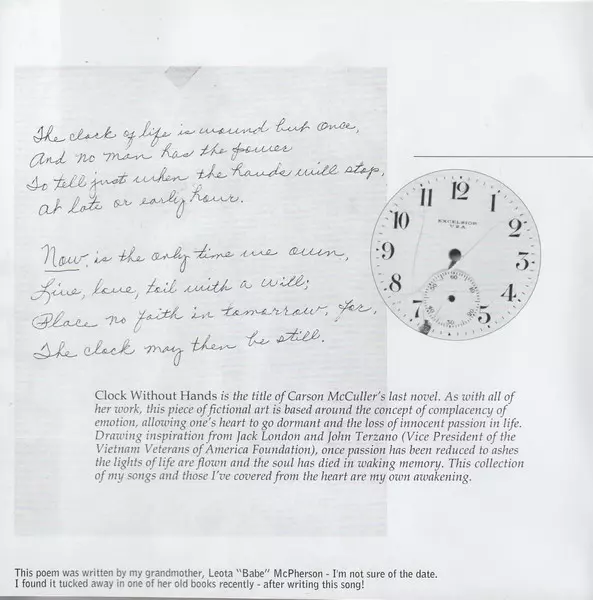 The clock of life is wound but once,
And no man has the power
To tell just when the hands will stop,
At late or early hour.
Now, is the only time we own,
Live, love, toil with a will;
Place no faith in tomorrow, for,
The clock may then be still.
12
11 1
10 2
EXCELSIOR
U.S.A.
9 3
8 4
7 5
60
10
50
20
40
30
Clock Without Hands is the title of Carson McCuller's last novel. As with all of
her work, this piece of fictional art is based around the concept of complacency of
emotion, allowing one's heart to go dormant and the loss of innocent passion in life.
Drawing inspiration from Jack London and John Terzano (Vice President of the
Vietnam Veterans of America Foundation), once passion has been reduced to ashes
the lights of life are flown and the soul has died in waking memory. This collection
of my songs and those I've covered from the heart are my own awakening.
This poem was written by my grandmother, Leota "Babe" McPherson - I'm not sure of the date.
I found it tucked away in one of her old books recently - after writing this song!